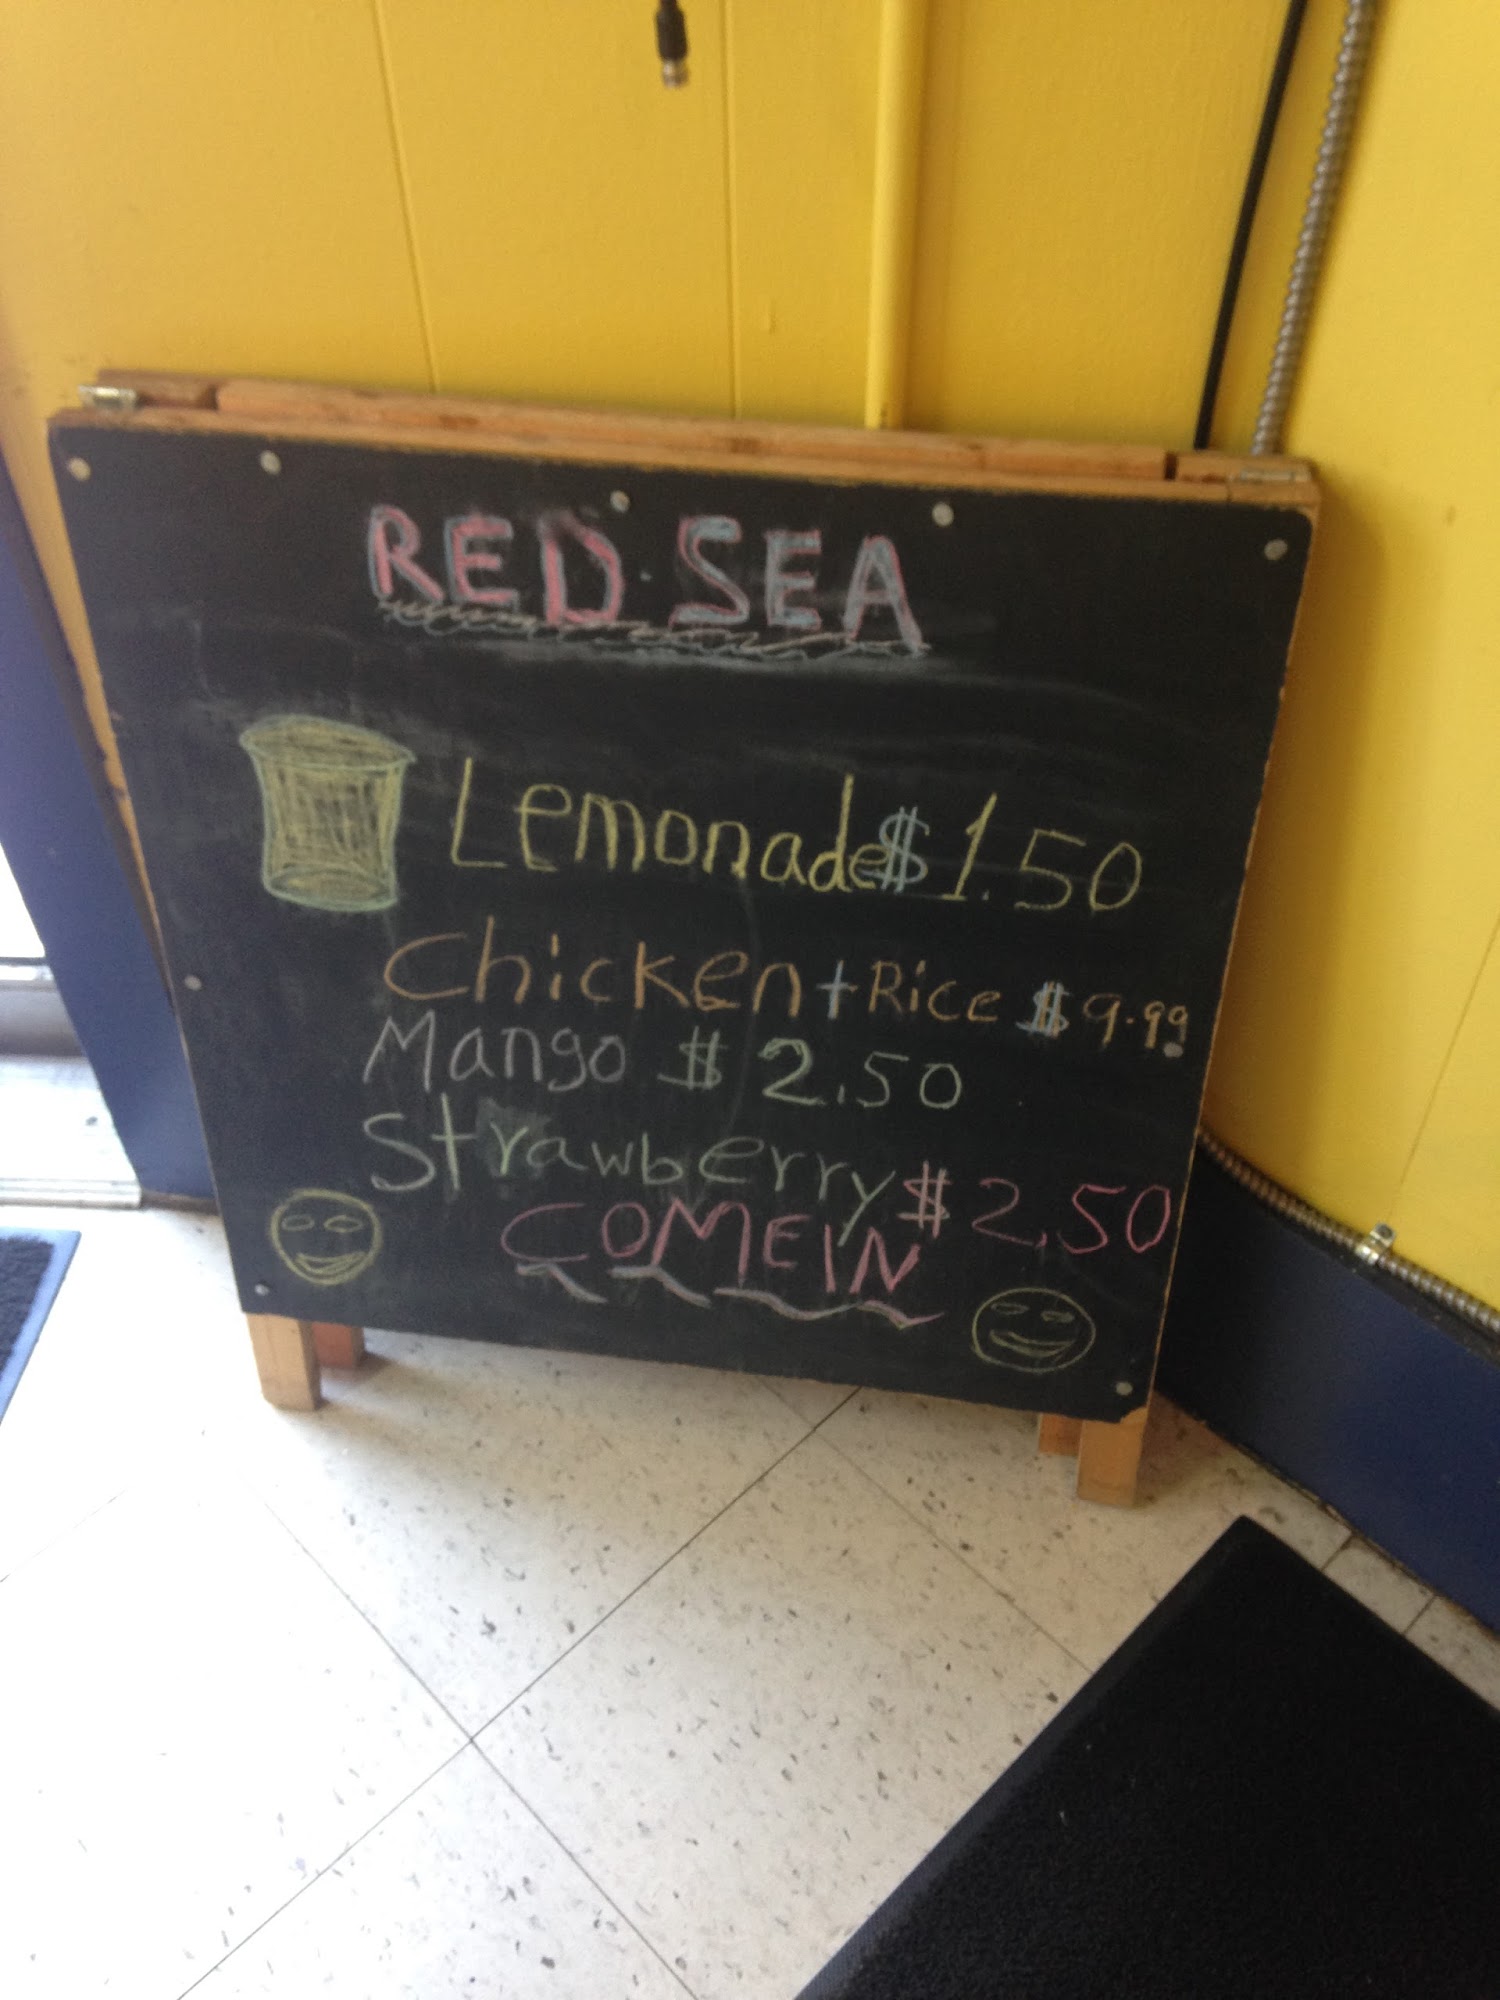 RED SEA
Lemonade $1.50
Chicken + Rice $9.99
Mango $2.50
Strawberry $2.50
COMEIN